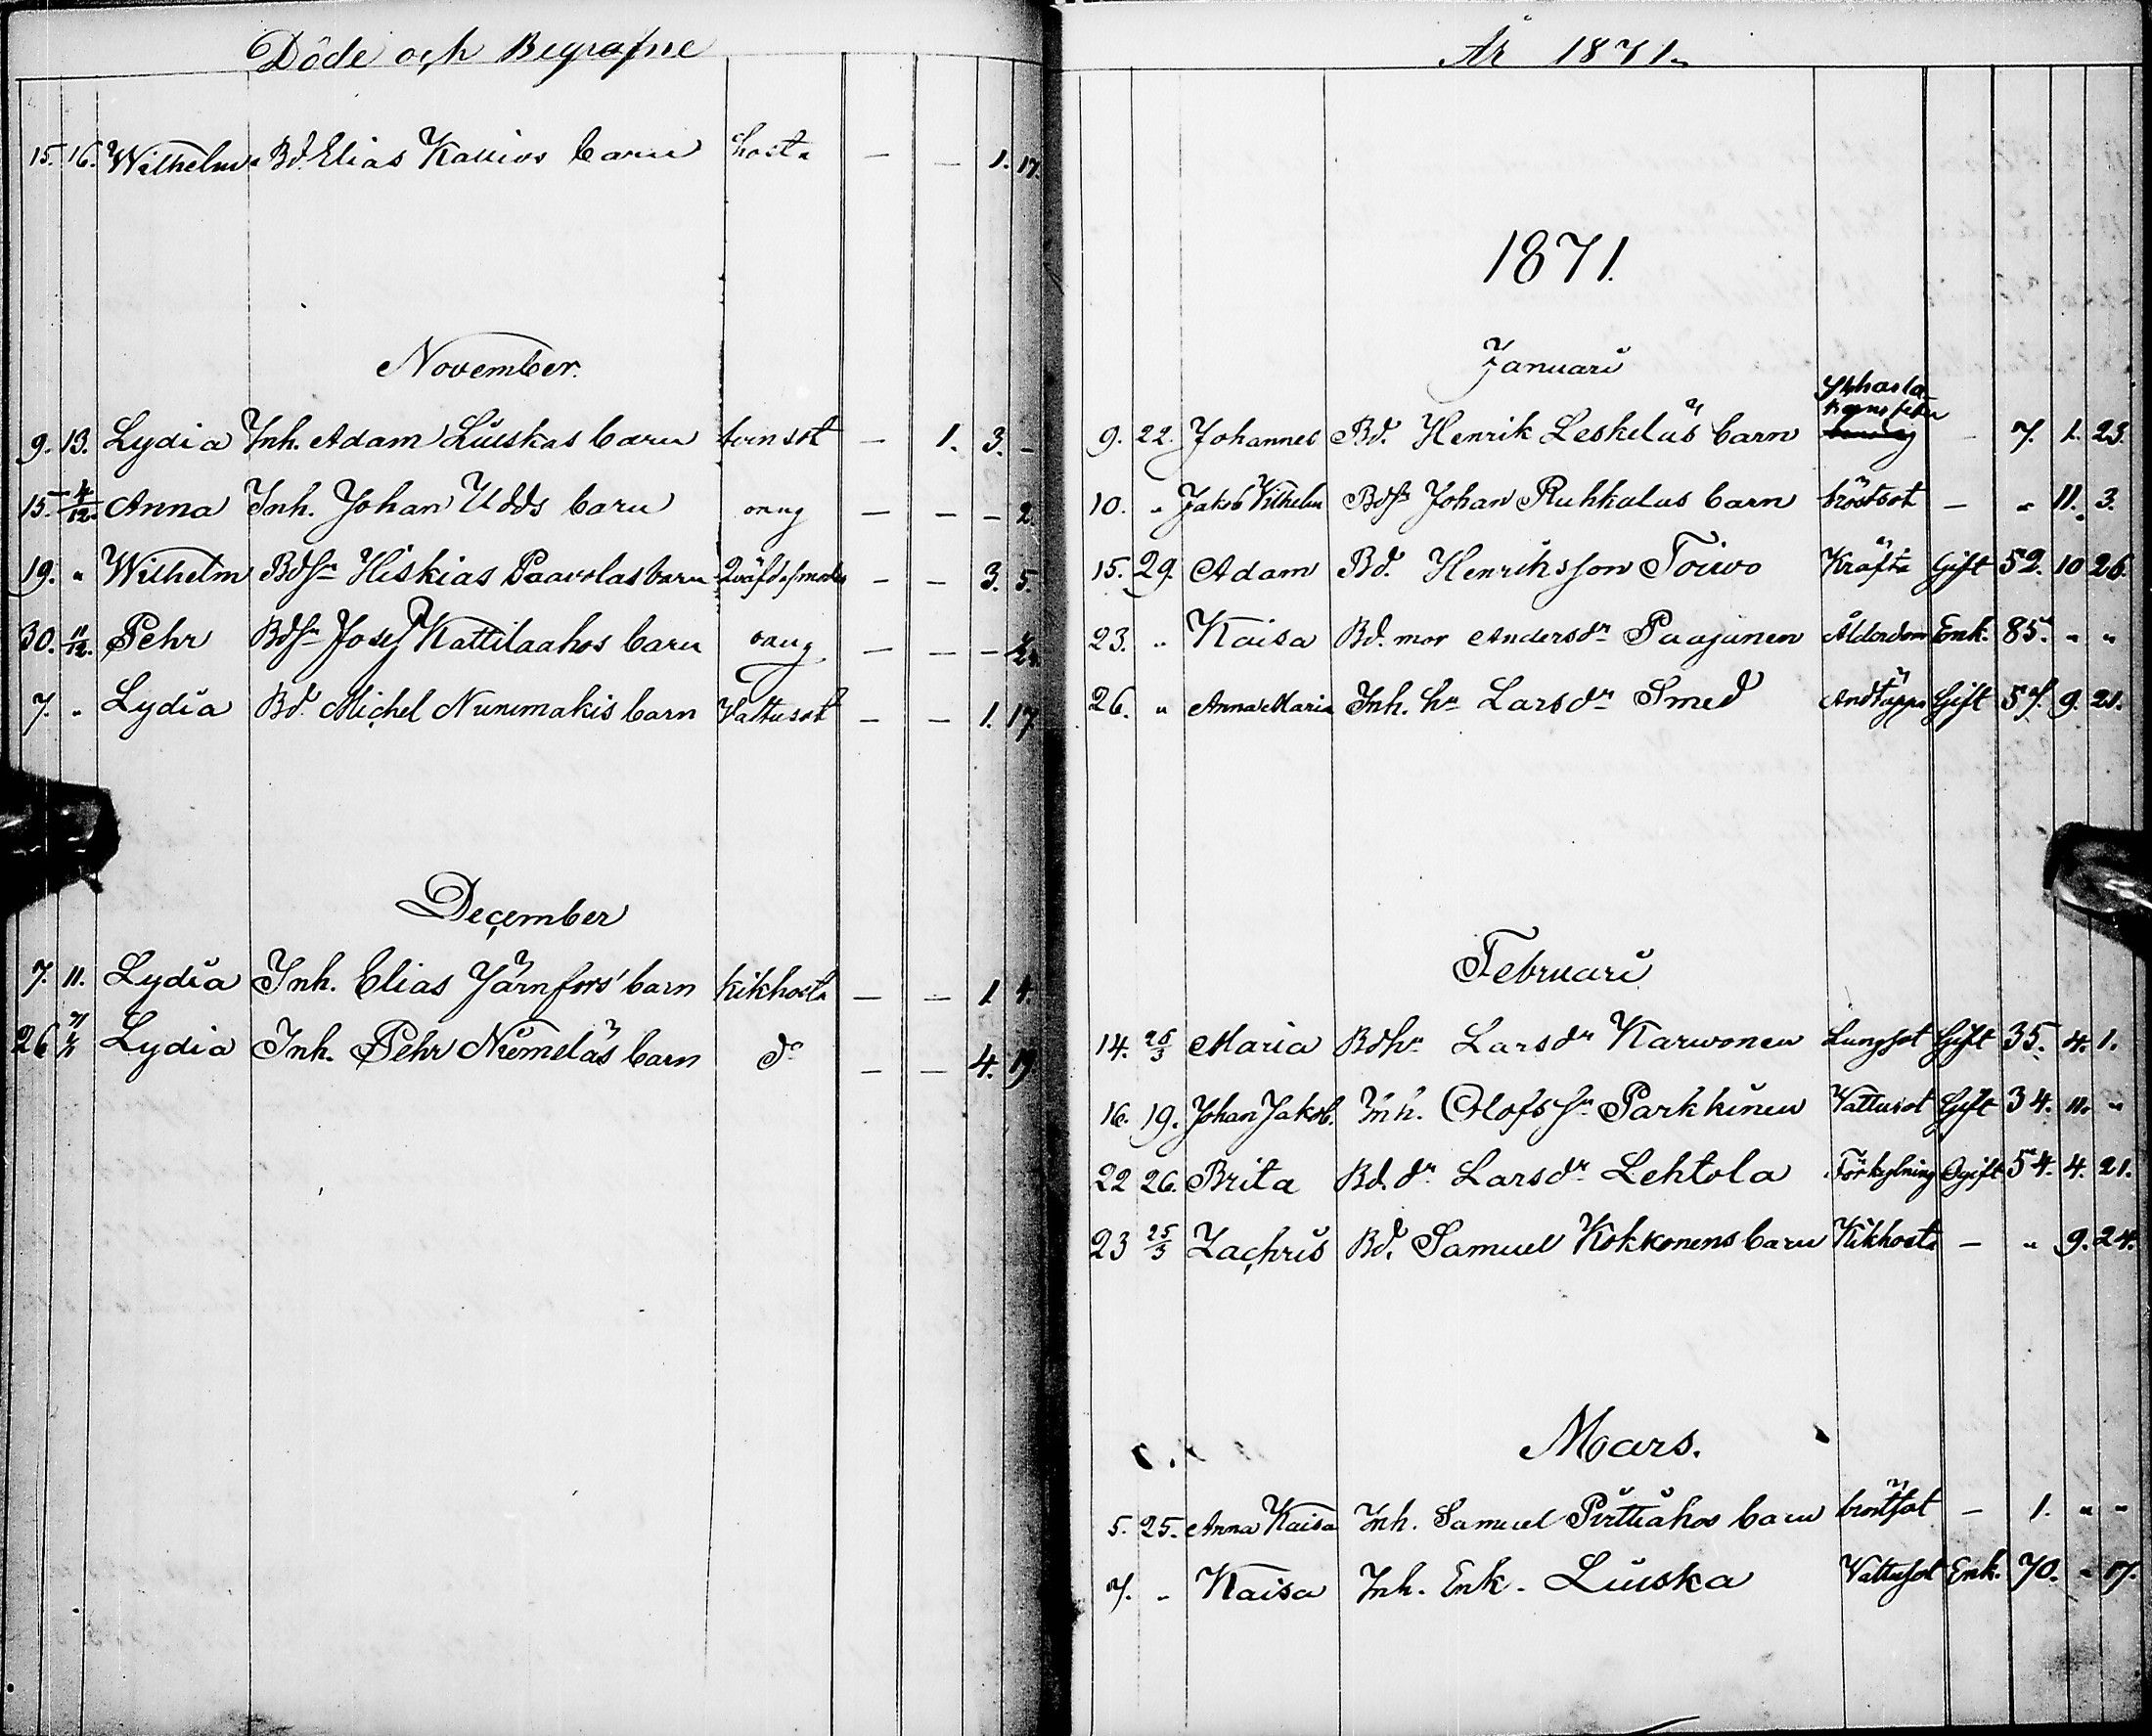 Döde och Begrafne
15. 16. Wilhelm Bd. Elias Kallios barn hosta — — 1. 17.
November.
9. 13. Lydia Inh. Adam Liuskas barn tvinsot — 1. 3. –
15. 4/12. Anna Inh. Johan Udds barn oang — — — 2.
19. " Wilhelm Bdsn Hiskias Paavolas barn — — 3. 5.
30. 11/12. Pehr Bdsn Josef Kattilaahos barn oang — — —
7. " Lydia Bd. Michel Nunimakis barn Vattusot — — 1. 17
December
7. 11. Lydia Inh. Elias Järnfors' barn kikhosta — — 1 4.
26 Lydia Inh. Pehr Niemeläs barn do — — 4. 19.
År 1871.
1871.
Januari
9. 22. Johannes Bd. Henrik Leskeläs barn — 7. 1. 23.
10. " Jakob Vilhelm Bdsn Johan Ruhkalas barn bröstsot — " 11. 3.
15. 29. Adam Bd. Henriksson Toivo Kräfta Gift 52. 10 26.
23. " Kaisa Bd. mor Andersdr Paajanen Ålderdom Enk. 85. " "
26. " Anna Maria Inh. hu Larsdr Smed Andtäppa Gift 57. 9. 21.
Februari
14. 25/3 Maria Bdhu Larsdr Karvonen Lungsot Gift 35. 4. 1.
16. 19. Johan Jakob. Inh. Olofssn Parkkinen Vattusot Gift 34. 11. "
22 26. Brita Bd. dr Larsdr Lehtola Förkylning Ogift 54. 4. 21.
23 25/3 Zachris Bd. Samuel Kokkonens barn Kikhosta — " 9. 24.
Mars.
5. 25. Anna Kaisa Inh. Samuel Pirttiahos barn bröstsot — 1. " "
7. " Kaisa Inh. Enk. Liuska Vattusot Enk. 70. " 17.